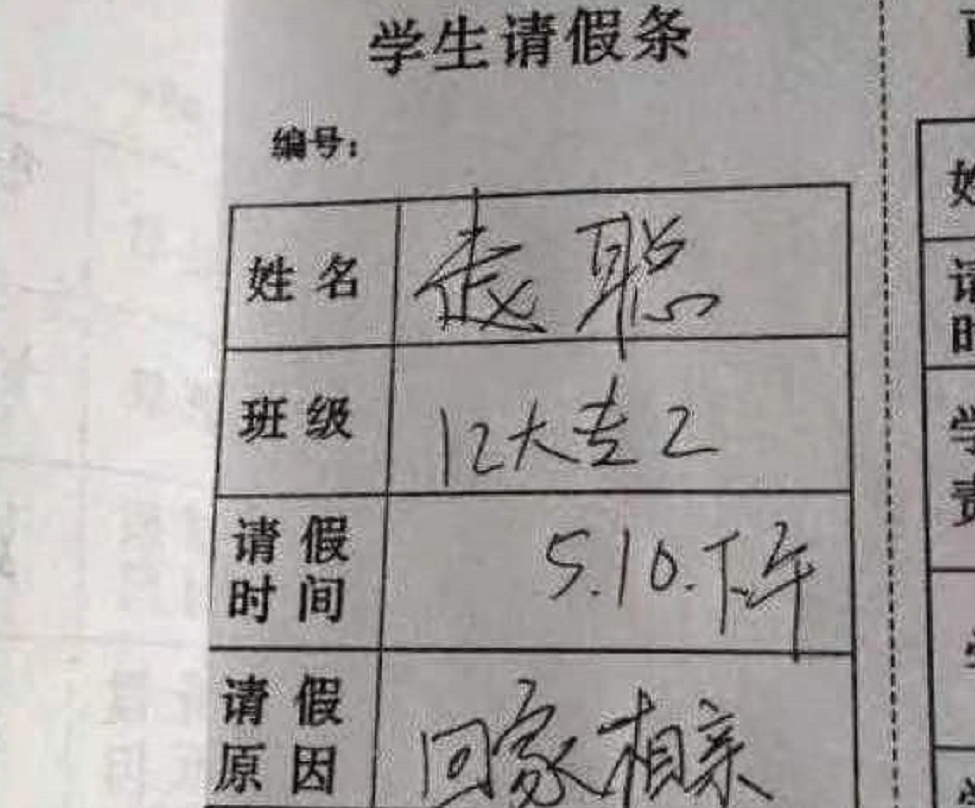 学生请假条
编号：
姓名 聪
班级 12大专2
请假时间 5.10.下午
请假原因 回家相亲